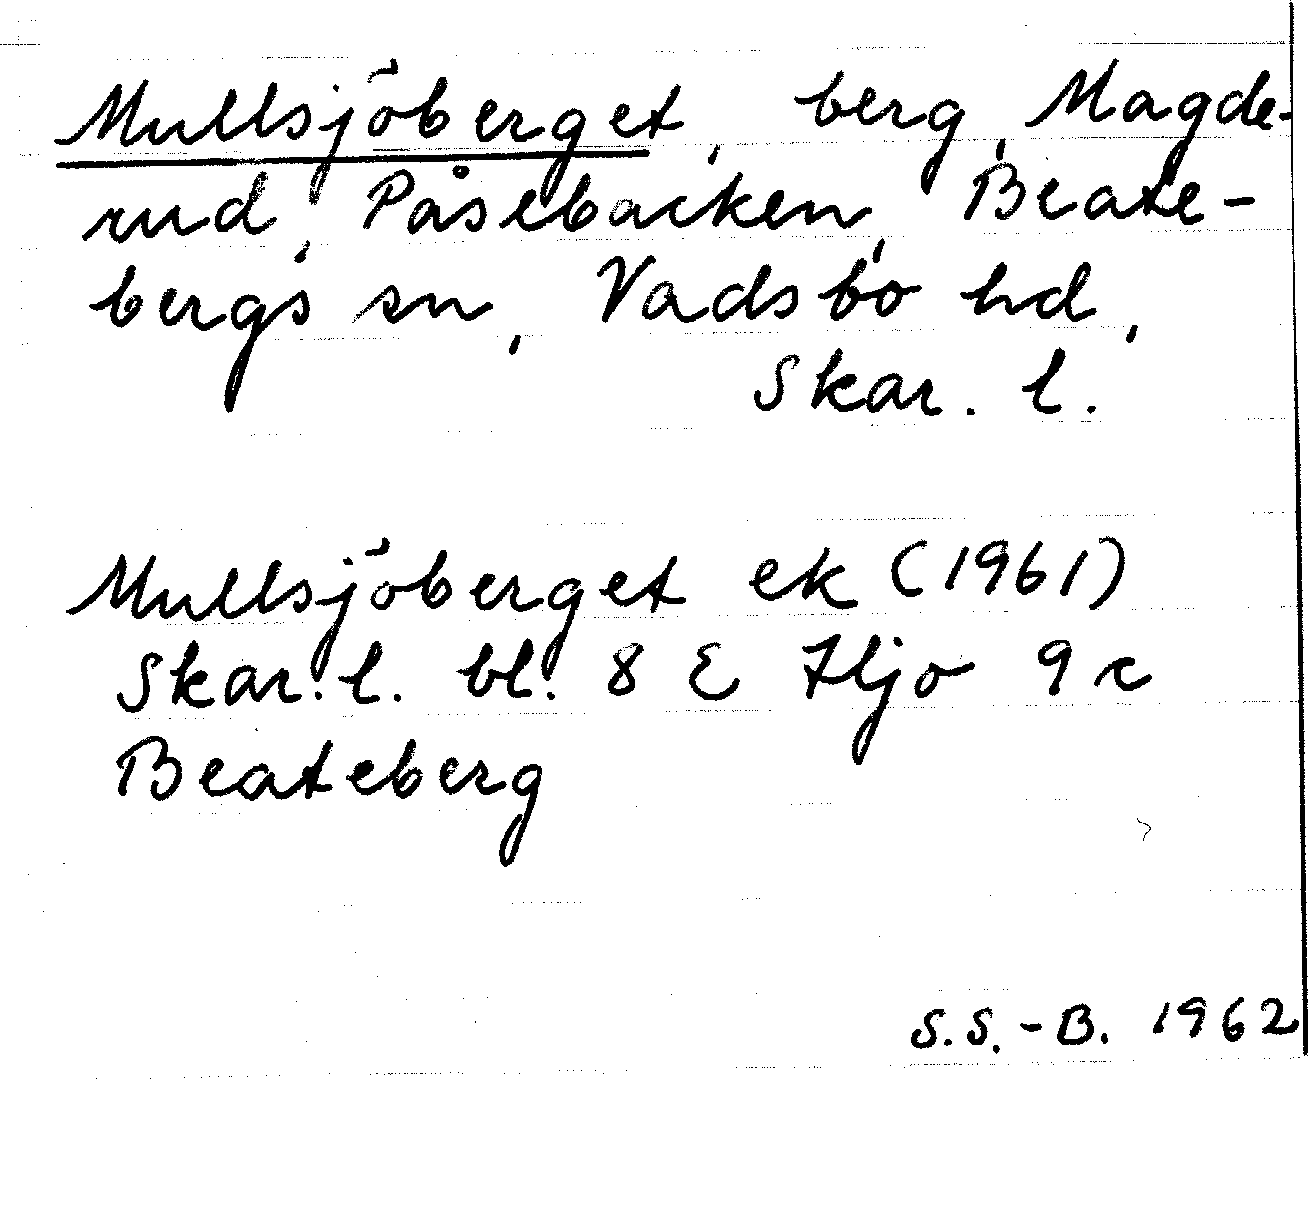 Mullsjöberget, berg, Magde-
rud, Påsebacken, Beate-
bergs sn, Vadsbo hd,
Skar. l.
Mullsjöberget ek (1961)
Skar. l. bl. 8 E Hjo 9 c
Beateberg
S.S.-B. 1962